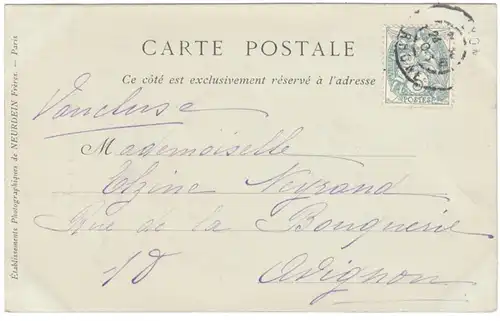 CARTE POSTALE
Ce côté est exclusivement réservé à l'adresse
POSTES
Vaucluse
Mademoiselle
Elzine Neyrand
Rue de la Bonquerie
18
Avignon
Etablissements Photographiques de NEURDEIN Frères. — Paris